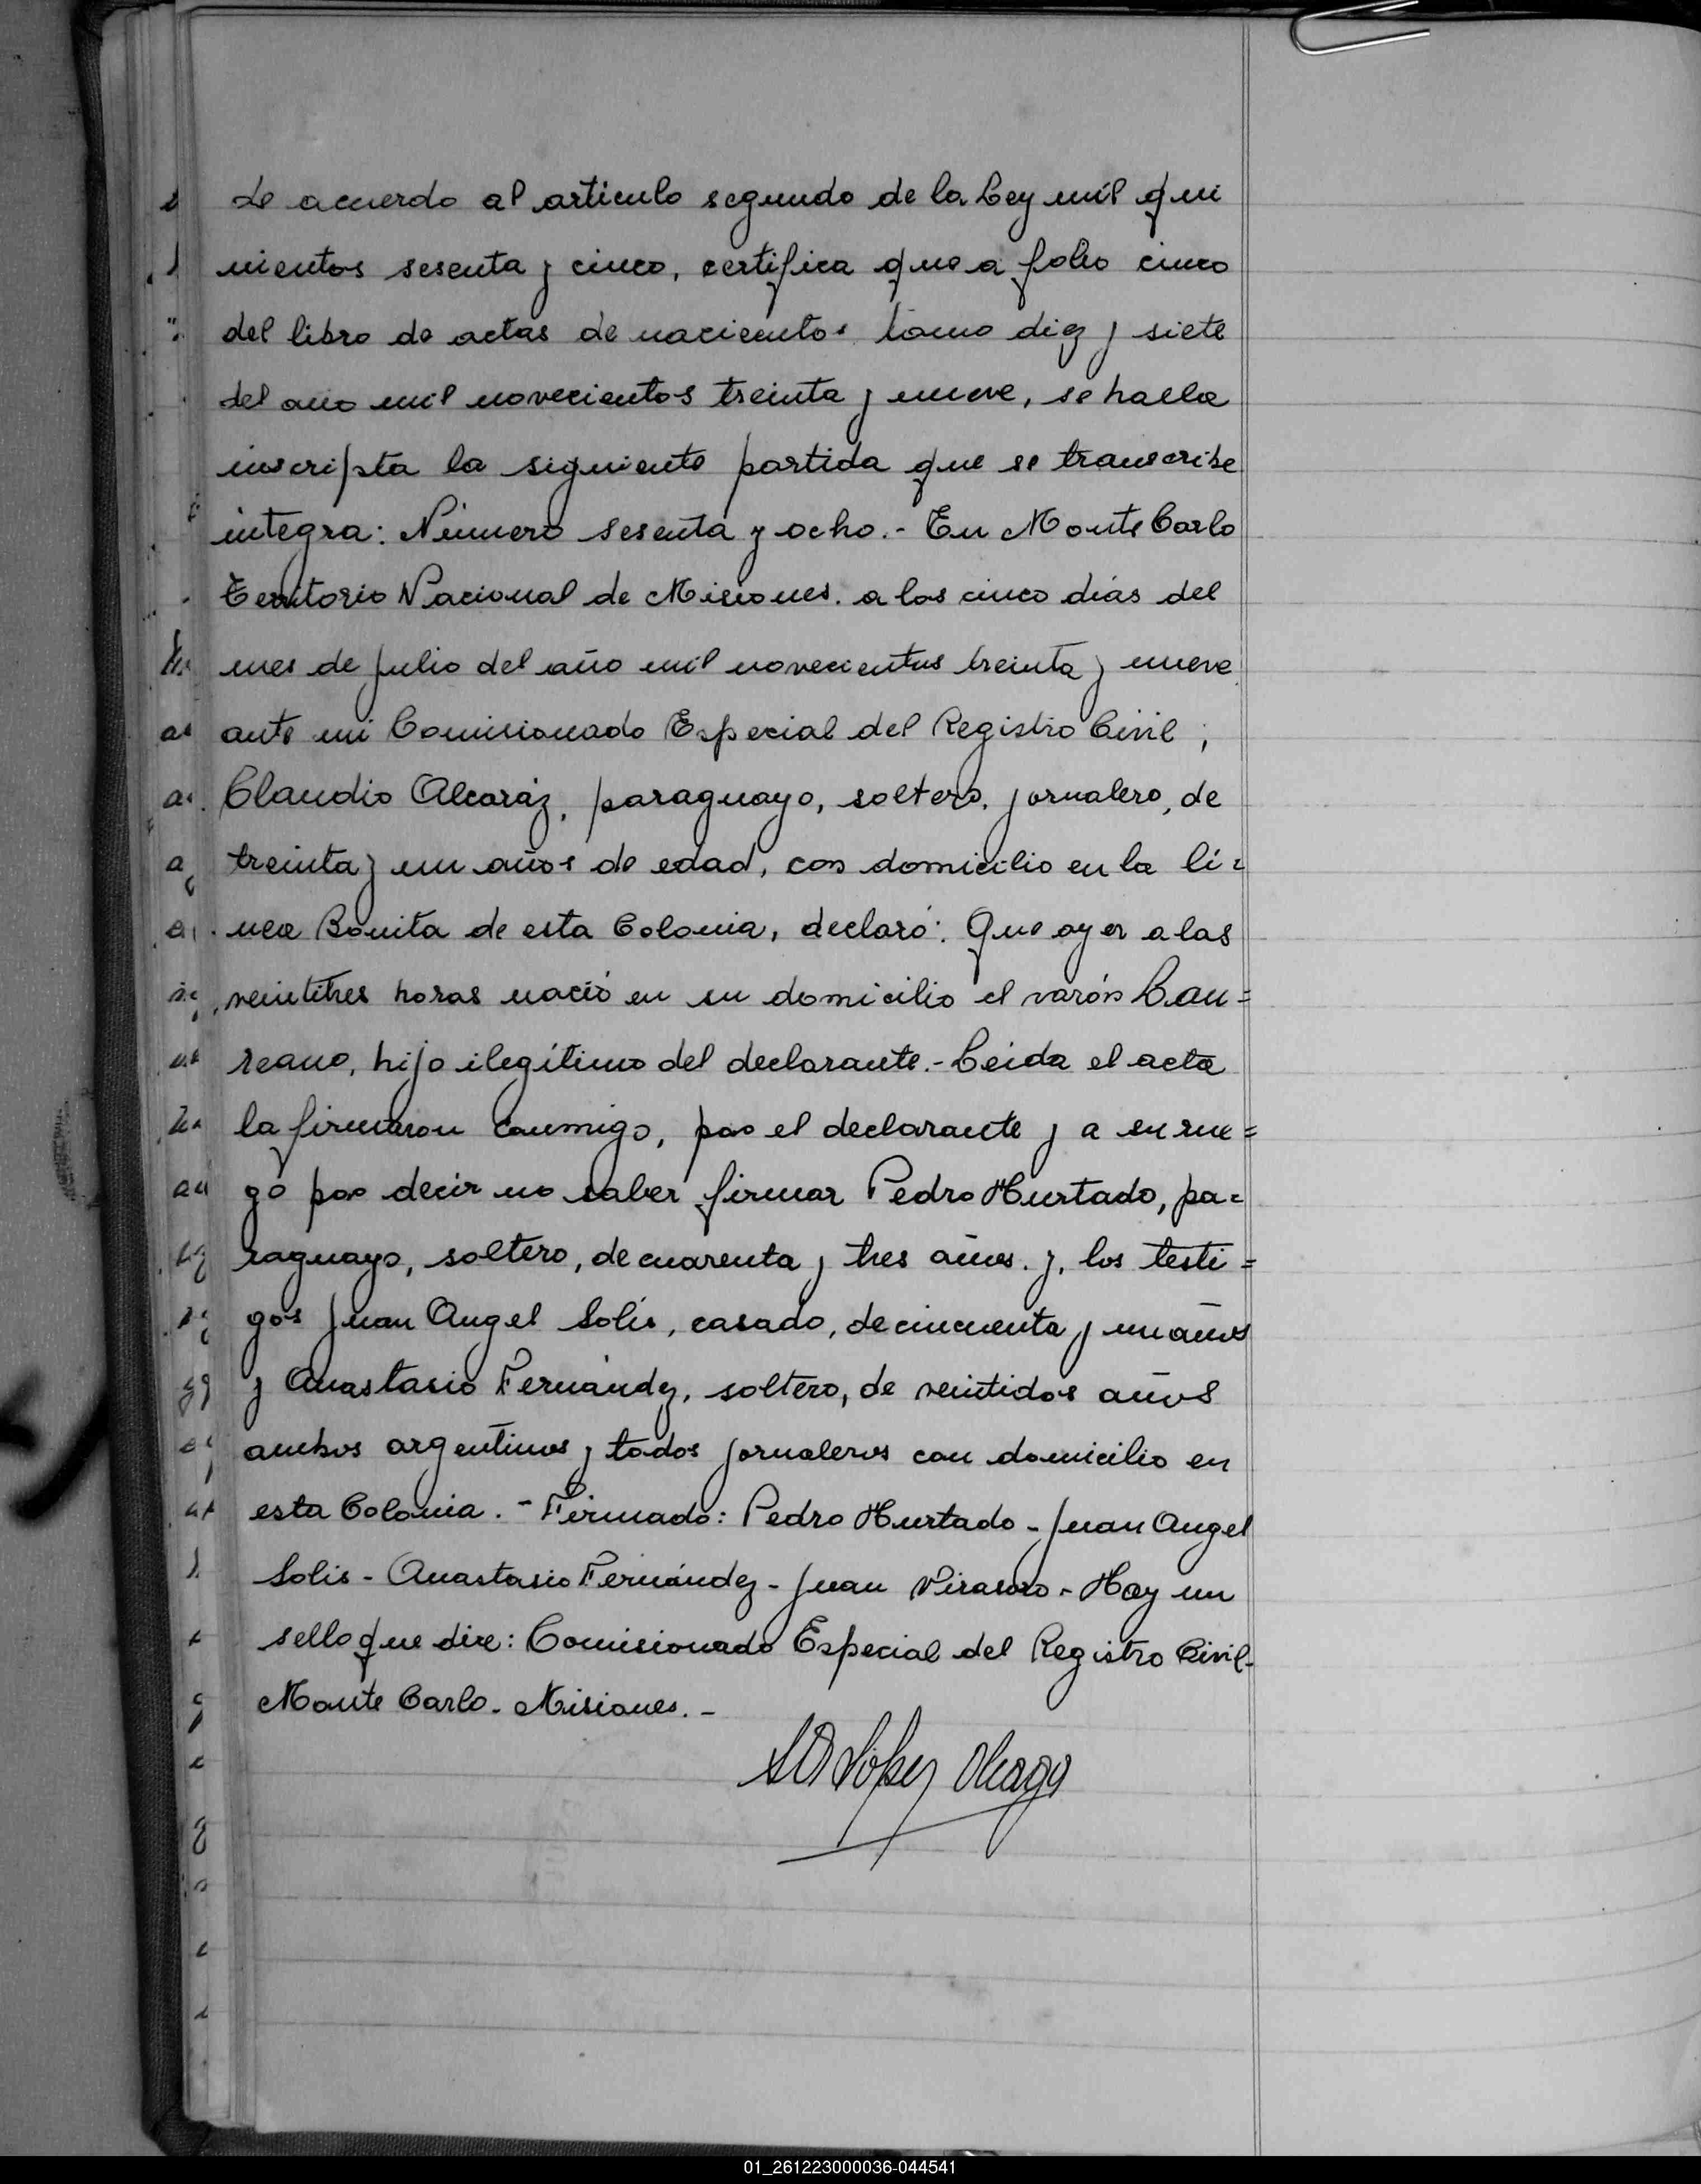 de acuerdo al articulo segundo de la Ley mil qui
nientos sesenta y cinco, certifica que a folio cinco
del libro de actas de nacientos tomo diez y siete
del año mil novecientos treinta y nueve, se halla
inscripta la siguiente partida que se transcribe
integra: Número sesenta y ocho.- En Monte Carlo
Territorio Nacional de Misiones. a los cinco días del
mes de julio del año mil novecientos treinta y nueve
ante mi Comisionado Especial del Registro Civil;
Claudio Alcaráz, paraguayo, soltero, jornalero, de
treinta y un años de edad, con domicilio en la lí=
nea Bonita de esta Colonia, declaró: Que ayer a las
veintitres horas nació en su domicilio el varón Lau=
reano, hijo ilegítimo del declarante.- Leida el acta
la firmaron conmigo, por el declarante y a su rue=
go por decir no saber firmar Pedro Hurtado, pa=
raguayo, soltero, de cuarenta y tres años. y, los testi=
gos Juan Angel Solis, casado, de cincuenta y un años
y Anastasio Fernández, soltero, de veintidos años
ambos argentinos y todos jornaleros con domicilio en
esta Colonia.- Firmado: Pedro Hurtado - Juan Angel
Solis - Anastasio Fernández - Juan Virasoro - Hay un
sello que dice: Comisionado Especial del Registro Civil-
Monte Carlo - Misiones.-
López
01_261223000036-044541